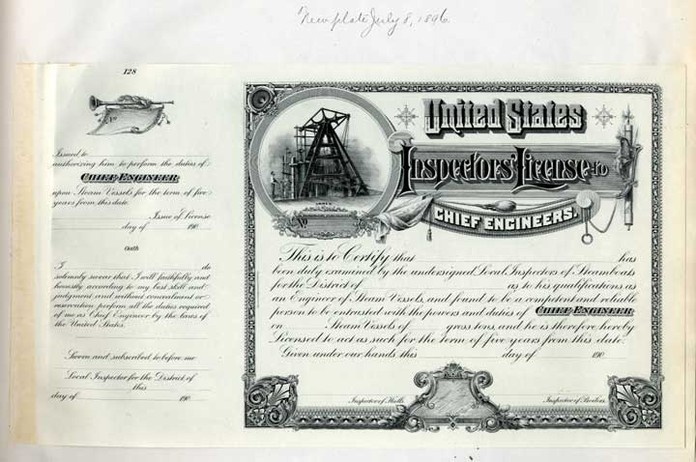 New plate July 8, 1896
128
Issued to
authorizing him to perform the duties of
CHIEF ENGINEER
upon Steam Vessels for the term of five
years from this date.
Issue of License
day of 190
Oath
I do
solemnly swear that I will faithfully and
honestly, according to my best skill and
judgment, and without concealment or
reservation, perform all the duties required
of me as Chief Engineer by the laws of
the United States.
Sworn and subscribed to before me
Local Inspector for the District of
this
day of 190
United States
Inspectors' License to
CHIEF ENGINEERS.
No
This is to Certify that has
been duly examined by the undersigned Local Inspectors of Steamboats
for the District of as to his qualifications as
an Engineer of Steam Vessels, and found to be a competent and reliable
person to be entrusted with the powers and duties of CHIEF ENGINEER
on Steam Vessels of gross tons, and he is therefore hereby
Licensed to act as such for the term of five years from this date.
Given under our hands, this day of 190
Inspector of Hulls.
Inspector of Boilers.